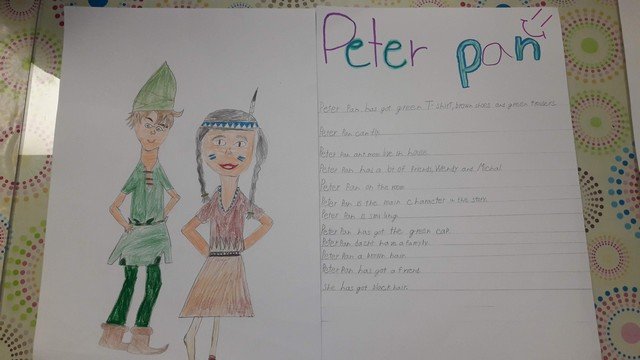 Peter pan
Peter Pan has got green T-shirt, brown shoes and green trousers.
Peter Pan can fly.
Peter Pan and mom live in house
Peter Pan has a lot of friends, Wendy and Michal.
Peter Pan on the
Peter Pan is the main character in the story.
Peter Pan is smiling.
Peter Pan has got the green cap.
Peter Pan doesn't have a family.
Peter Pan a brown hair.
Peter Pan has got a friend.
She has got black hair.